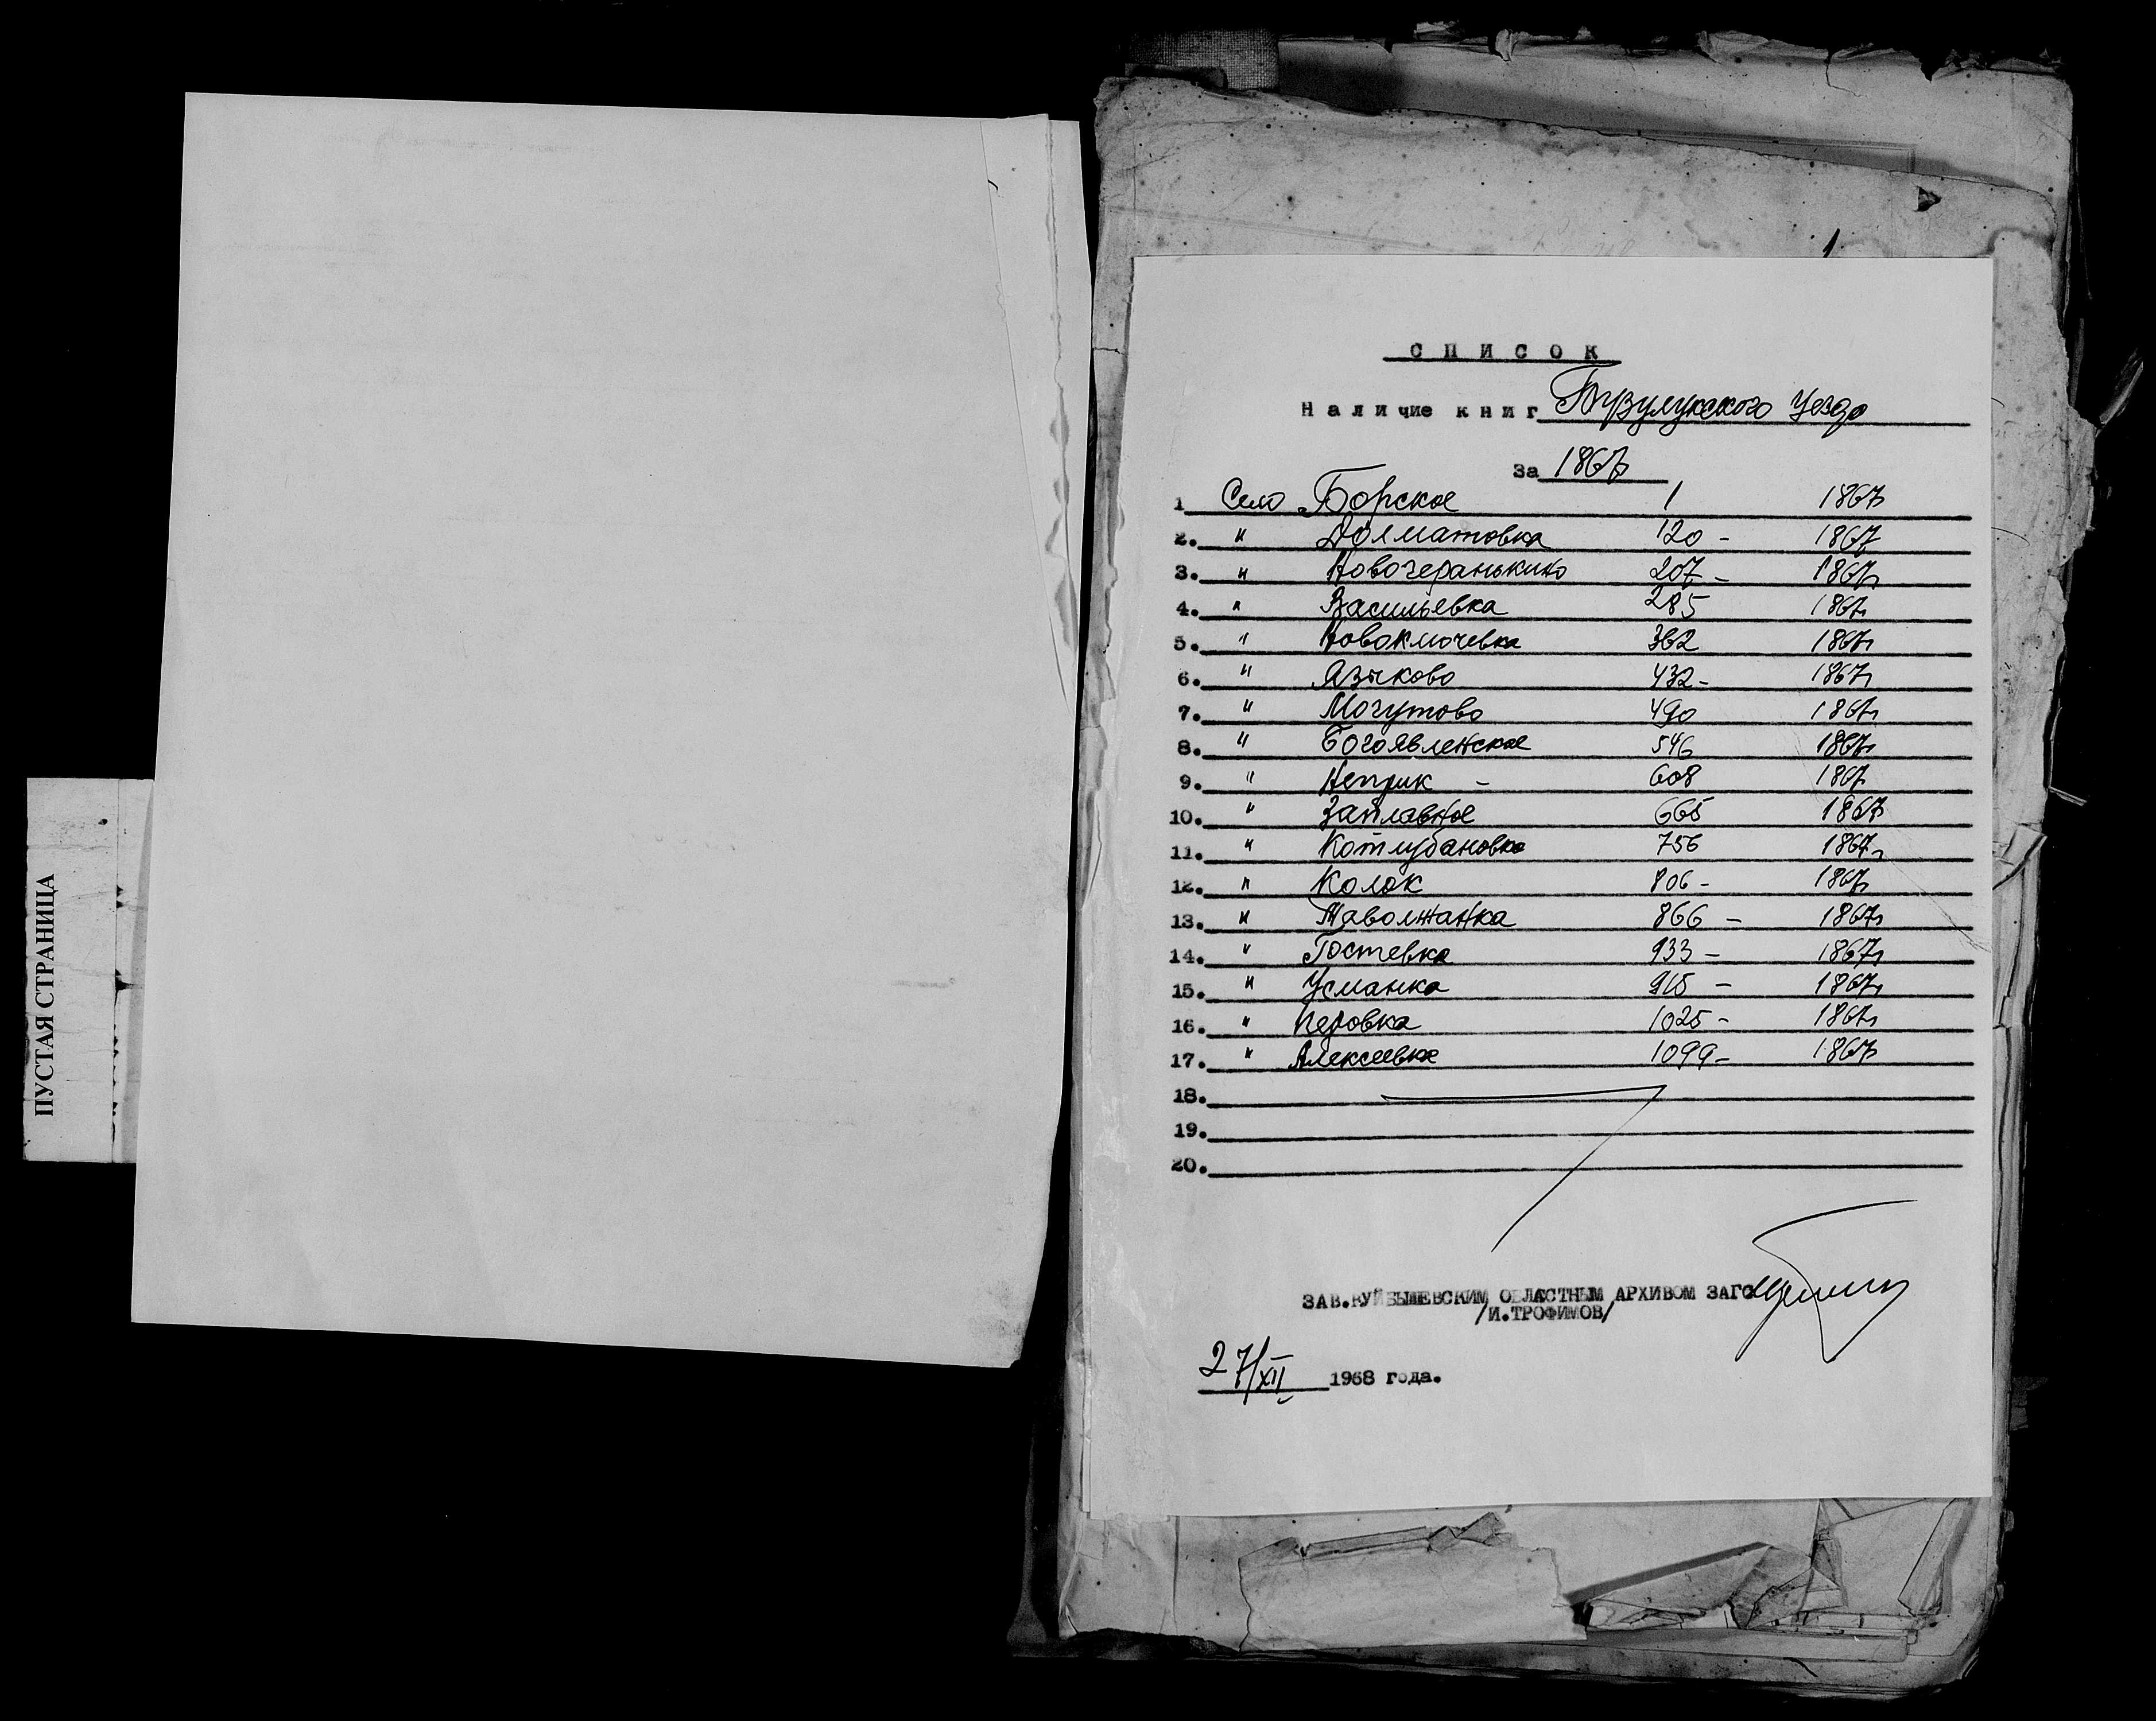 ПУСТАЯ СТРАНИЦА
СПИСОК
Наличие книг Бузулукского уезда
За 1867
1 Село Борское 1 1867
2. " Долматовка 120 - 1867
3. " Новогеранькино 207 - 1867
4. " Васильевка 285 1867
5. " Новоключевка 362 1867
6. " Языково 432 - 1867
7. " Могутово 490 1867
8. " Богоявленское 546 1867
9. " Неприк - 608 1867
10. " Заплавное 665 1867
11. " Котлубановка 756 1867
12. " Колок 806 - 1867
13. " Таволжанка 866 - 1867
14. " Гостевка 933 - 1867
15. " Усманка - 1867
16. " Перовка 1025 - 1867
17. " Алексеевка 1099 - 1867
18.
19.
20.
ЗАВ.КУЙБЫШЕВСКИМ ОБЛАСТНЫМ АРХИВОМ ЗАГС
/И.ТРОФИМОВ/
27/XII 1968 года.